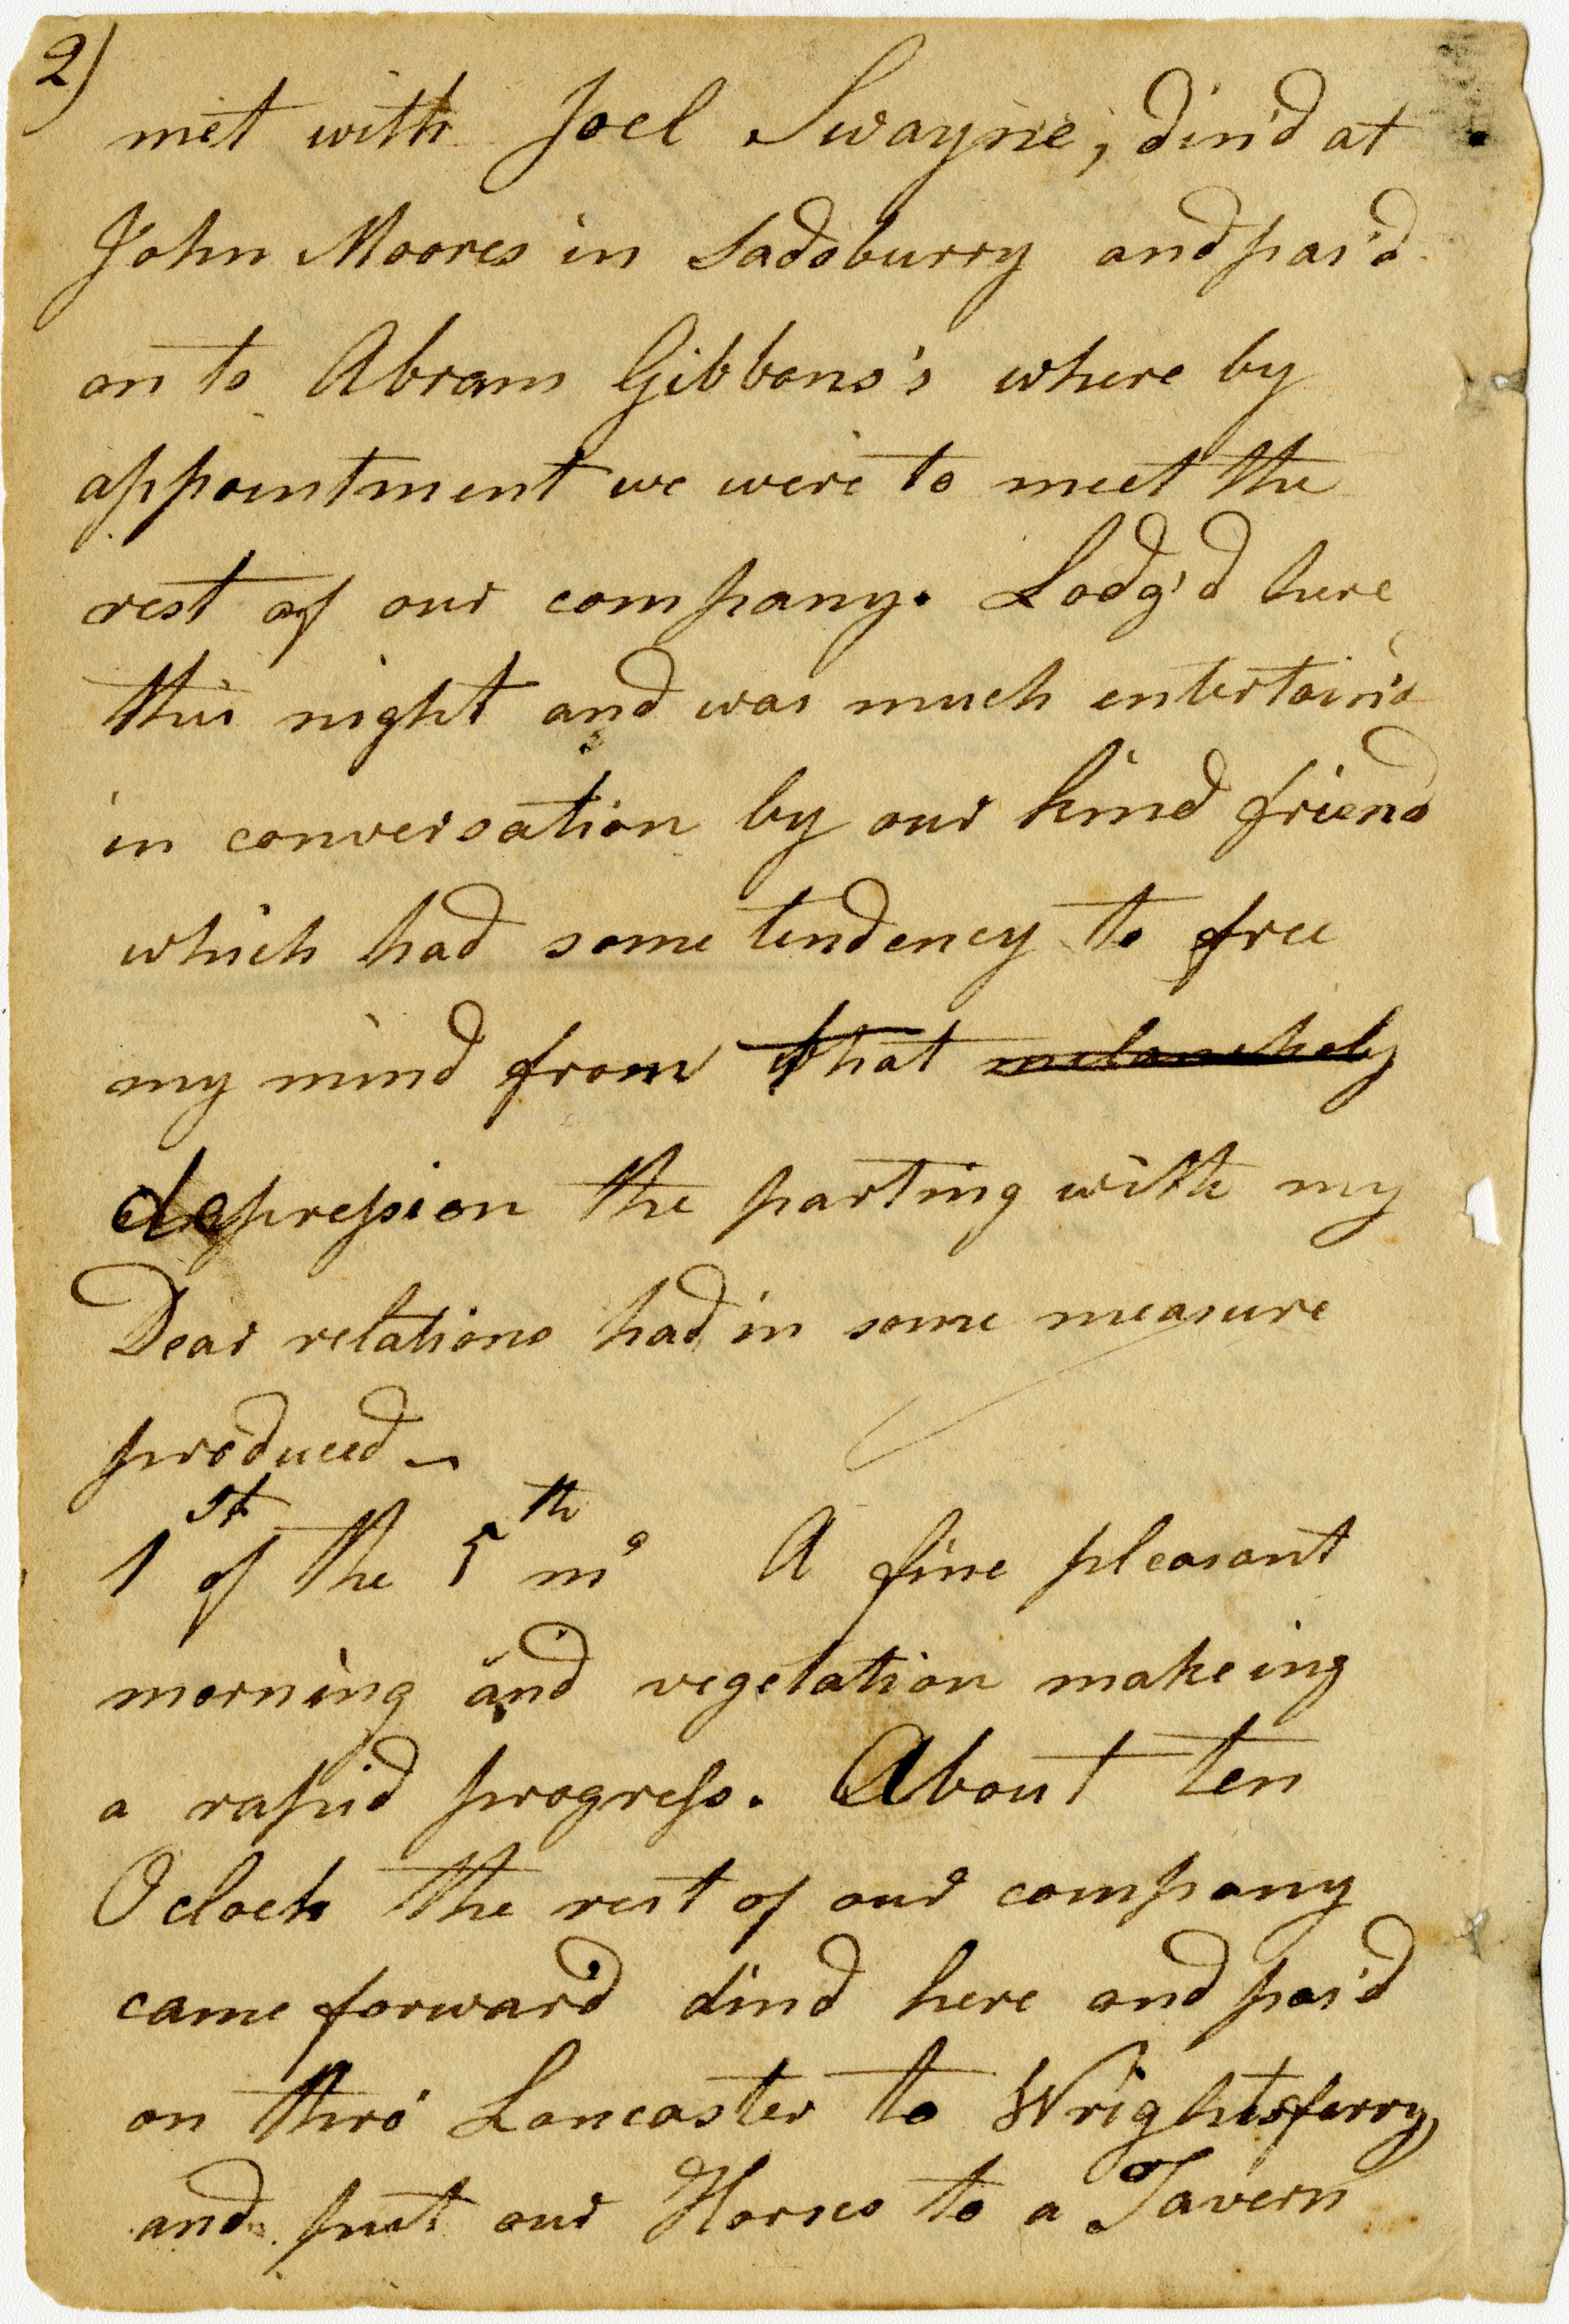 2)
met with Joel Swayne, din'd at
John Moores in Sadsburry and pas'd
on to Abram Gibbons's where by
appointment we were to meet the
rest of our company. Lodg'd here
this night and was much entertain'd
in conversation by our kind friend
which had some tendency to free
my mind from that melancholy
depression the parting with my
Dear relations had in some measure
produced —
1st of the 5th mo A fine pleasant
morning and vegetation makeing
a rapid progress. About ten
Oclock the rest of our company
came forward dind here and pas'd
on thro' Lancaster to Wrightsferry,
and put our Horses to a Tavern